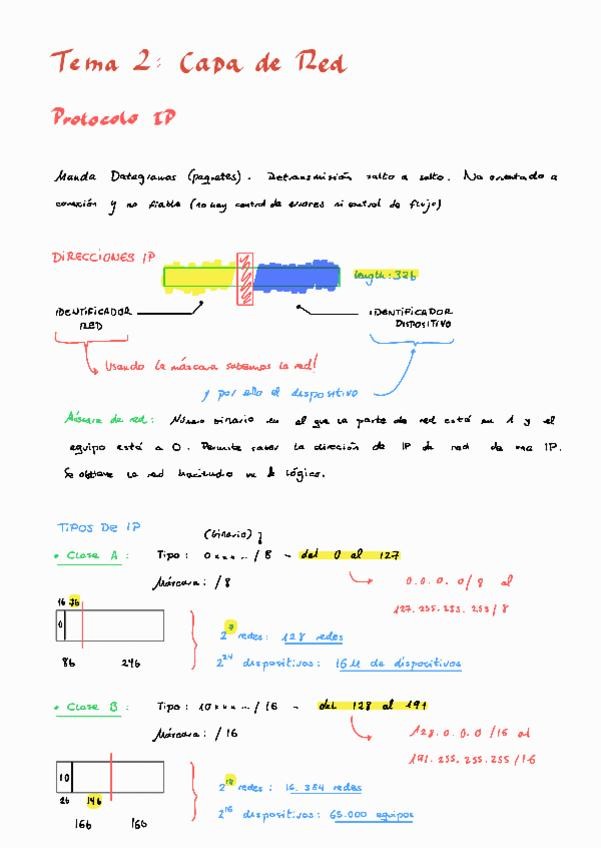 Tema 2: Capa de Red
Protocolo IP
Manda Datagramas (paquetes). Retransmisión salto a salto. No orientado a
conexión y no fiable (no hay control de errores ni control de flujo)
DIRECCIONES IP
length: 32b
IDENTIFICADOR RED
IDENTIFICADOR DISPOSITIVO
Usando la máscara sabemos la red!
y por ello el dispositivo
Máscara de red: Número binario en el que la parte de red está en 1 y el
equipo está a 0. Permite sacar la dirección de IP de red de una IP.
Se obtiene la red haciendo un & lógico.
TIPOS DE IP
(binario)
• Clase A: Tipo: 0xxx... / 8 - del 0 al 127
Máscara: /8
0.0.0.0/8 al
127.255.255.255/8
1b 7b
0
8b 24b
2^7 redes: 128 redes
2^24 dispositivos: 16M de dispositivos
• Clase B: Tipo: 10xxx... / 16 - del 128 al 191
Máscara: /16
128.0.0.0/16 al
191.255.255.255/16
10
2b 14b
16b 16b
redes: 16.384 redes
2^16 dispositivos: 65.000 equipos